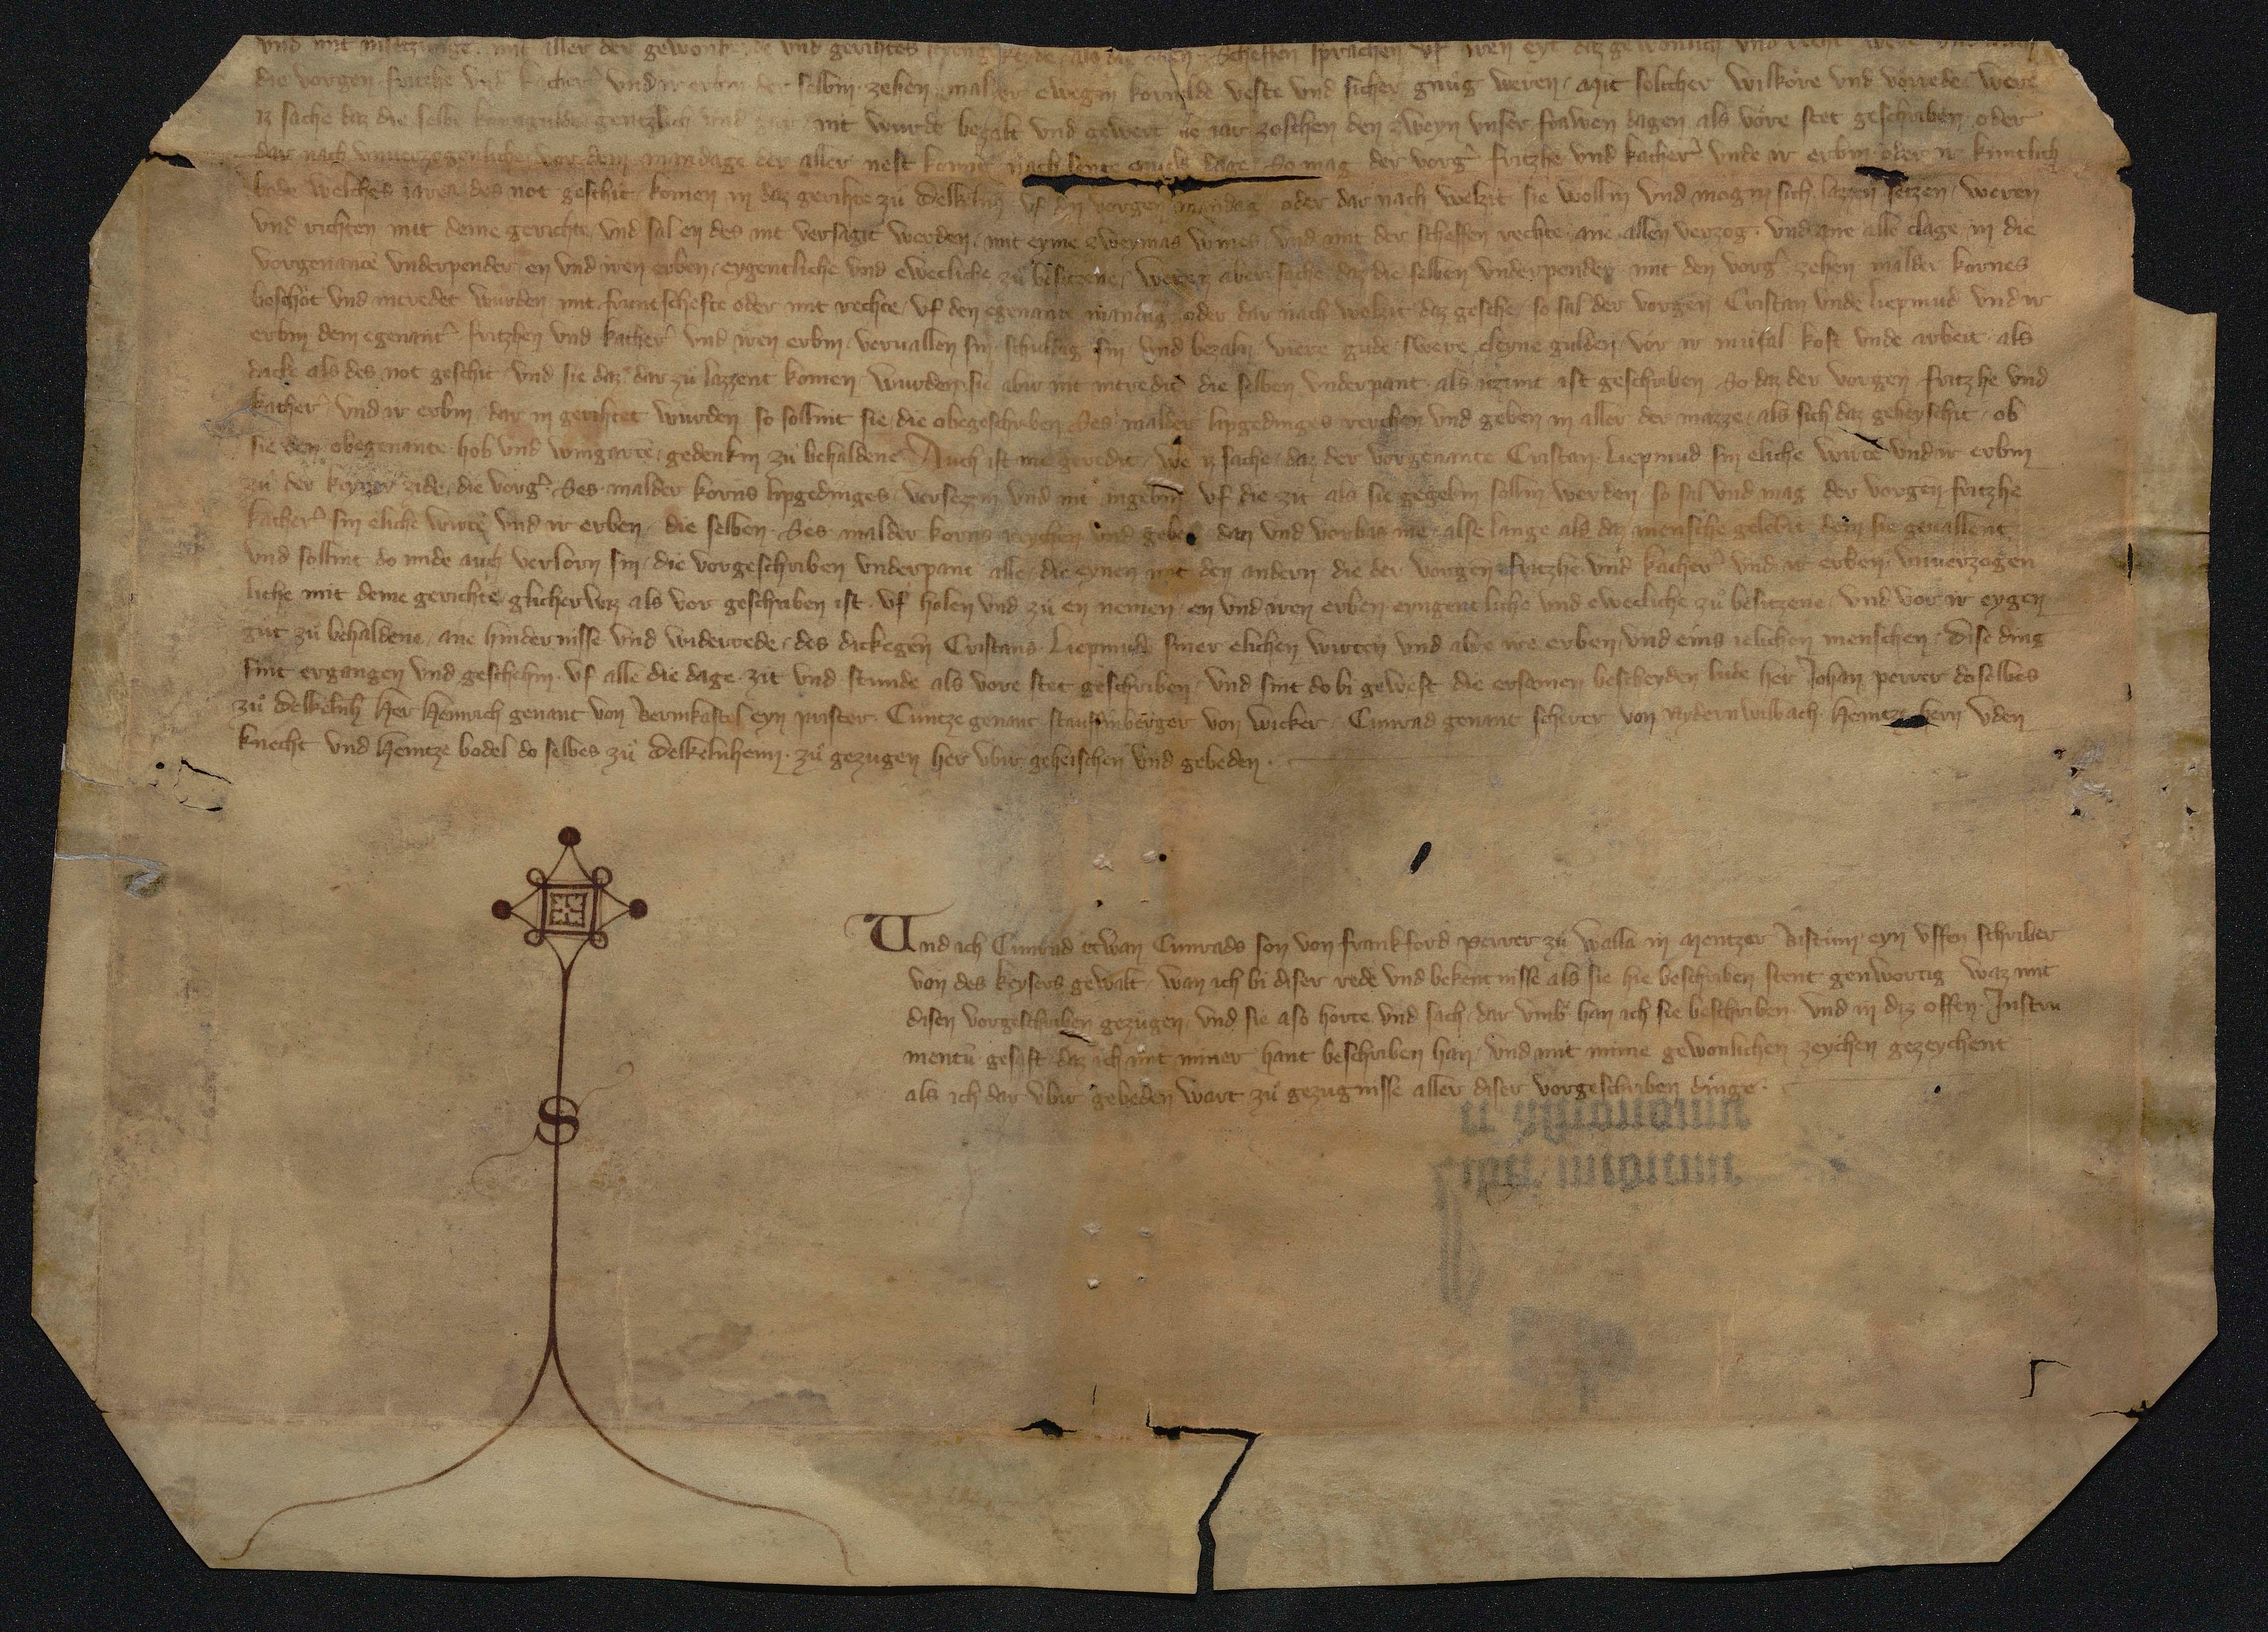 und mit aller der gewonheide und gerichtes Scheffen sprachen uf iren eyt daz gewonlich und recht were
die vorgen fritzhe und kather᷑ und ir erbin der selbin zehen malder ewegin korngulde veste und sicher gnug weren, Mit solicher wilkore und vorrede were
iz sache daz die selbe korngulde gentzlich und gar nit wurde bezalt und gewert ie iar zoschen den zweyn unser frawen dagen als vore stet geschriben oder
dar nach unverzogenliche vor dem mandage der aller nest komit nach sente dage So mag der vorg᷑ fritzhe und kather᷑ unde ir erbin oder ir kuntlich
bode welches iares des not geschit komen in daz gerihte zu delkelnh᷑ uf den vorgen mandag oder dar nach welzit sie wollin und mogin sich lazzen setzen, weren
und richten mit deme gerichte, und sal en des nit versagit werden, mit eyme zweymas wines, und mit der scheffen rechte ane allen verzog und ane alle clage in die
vorgenante underpender en und iren erben, eygentliche und ewecliche zu besitzene, were iz aber sache daz die selben underpender mit den vorg᷑ zehen malder kornes
beschot und intredet wurden mit fruntschefte oder mit rechte, uf den egenante mandag oder dar nach welzit daz geschehe, so sal der vorgen Cristan unde liepmud und ir
erbin dem egenant᷑ fritzhen und kather᷑ und iren erbin vervallen sin schuldig sin und bezaln viere gude swere cleyne gulden vor ir mũsal kost unde arbeit als
dicke als des not geschit und sie daz dar zu lazzent komen wurden sie abir nit intredit die selben underpant als itzunt ist geschriben So daz der vorgen fritzhe und
kather᷑ und ir erbin dar in gerihtet wurden so sollint sie die obegeschriben Ses malder lipgedinges reychen und geben in aller der mazze als sich daz geheyschit ob
sie den obegenante hob und wingarte gedenkin zu behaldene Auch ist me geredit, we iz sache daz der vorgenante Cristan Liepmud sin eliche wirte und ir erbin
zu der keyner zide die vorg᷑ Ses malder korns lipgedinges versezin und nit ingebin uf die zit als sie gegebin sollin werden so sal und mag der vorgen fritzhe
kather᷑ sin eliche wirte und ir erben die selben Ses malder korns reychen und geben dan und vorbas me alse lange als daz mensche gelebit dem sie gevallent
und sollint do mide auch verlorn sin die vorgeschriben underpant alle die eynen mit den andern die der vorgen fritzhe und kather᷑ und ir erben unverzogen
liche mit deme gerichte glicherwiz als vor geschriben ist uf holen und zu en nemen en und iren erben eyngentliche und ewecliche zu besitzene und vor ir eygen
gut zu behaldene ane hindernisse und widerrede des dickegen Cristans Liepmude siner elichen wirten und alre ire erben und eins ielichen menschen Dise ding
sint ergangen und geschehin uf alle die dage zit und stunde als vore stet geschriben und sint dobi gewest die ersamen bescheyden lude her Johan perrer doselbes
zu delkelnh᷑ Her Henrich genant von Bernkastel eyn prister Cuntze genant stauffinberger von wicker Cunrad genant scherer von Nydernwilbach Heintze uden
knecht und Heintze bodel do selbes zu delkelnheim zu gezugen her ubir geheischen und gebeden
S
Und ich Cunrad etwan Cunrads son von frankford perrer zu walla in Mentzer Bistum eyn uffen schriber
von des keysers gewalt, wan ich bi diser rede und bekentnisse als sie hie beschriben stent genwortig waz mit
disen vorgeschriben gezugen, und sie aso horte und sach, dar umb han ich sie beschriben und in diz offen Instru
mentũ gesast daz ich mit miner hant beschriben han und mit mime gewonlichen zeychen gezeychent
als ich dar ubir gebeden wart zu gezugnisse aller diser vorgeschriben dinge